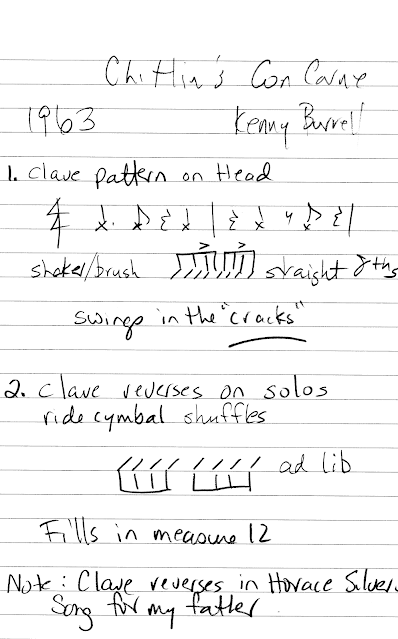 Chitlin's Con Carne
1963 Kenny Burrell
1. Clave pattern on Head
4/4
shaker/brush > > straight 8ths
swings in the "cracks"
2. Clave reverses on solos
ride cymbal shuffles
ad lib
Fills in measure 12
Note: Clave reverses in Horace Silver.
Song for my father